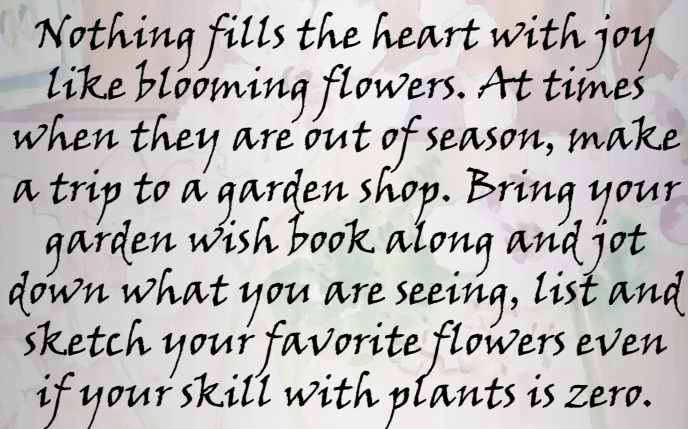 Nothing fills the heart with joy
like blooming flowers. At times
when they are out of season, make
a trip to a garden shop. Bring your
garden wish book along and jot
down what you are seeing, list and
sketch your favorite flowers even
if your skill with plants is zero.